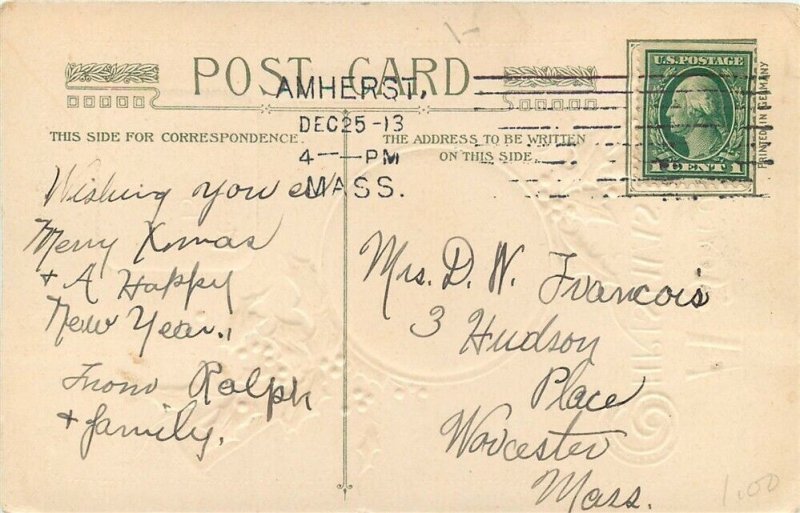 POST CARD
AMHERST,
DEC 25-13
4--PM
MASS.
U.S. POSTAGE
1 CENT 1
PRINTED IN GERMANY
THIS SIDE FOR CORRESPONDENCE.
THE ADDRESS TO BE WRITTEN
ON THIS SIDE.
Wishing you a
Merry Xmas
+ A Happy
New Year.,
From Ralph
+ family.
Mrs. D. N. Francois
3 Hudson
Place
Worcester
Mass.
1-
1.00